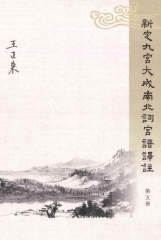 新定九宮大成南北詞宮譜譯註
第五冊
王正來